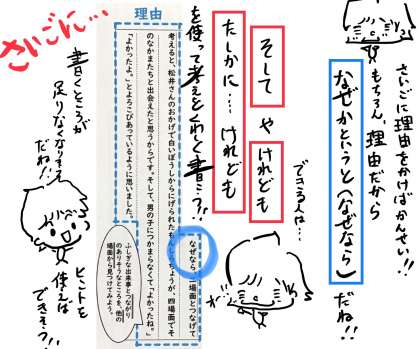 さいごに理由をかけばかんせい!!
もちろん、理由だから
なぜかというと(なぜなら)だね!!
できる人は…
そして や けれども
たしかに… けれども
を使って考えをくわしく書こう!!
理由
なぜなら、二場面とつなげて
考えると、松井さんのおかげで白いぼうしからにげられたもんしろちょうが、四場面でそ
のなかまたちと出会えたと思うからです。そして、男の子につかまらなくて「よかったね。」
「よかったよ。」とよろこびあっているように思いました。
ふしぎな出来事とつながり
のありそうなところを、他の
場面から見つけてみよう。
さいごに…
書くところが
足りなくなりそう
だね!
ヒントを
使えば
できそう!!